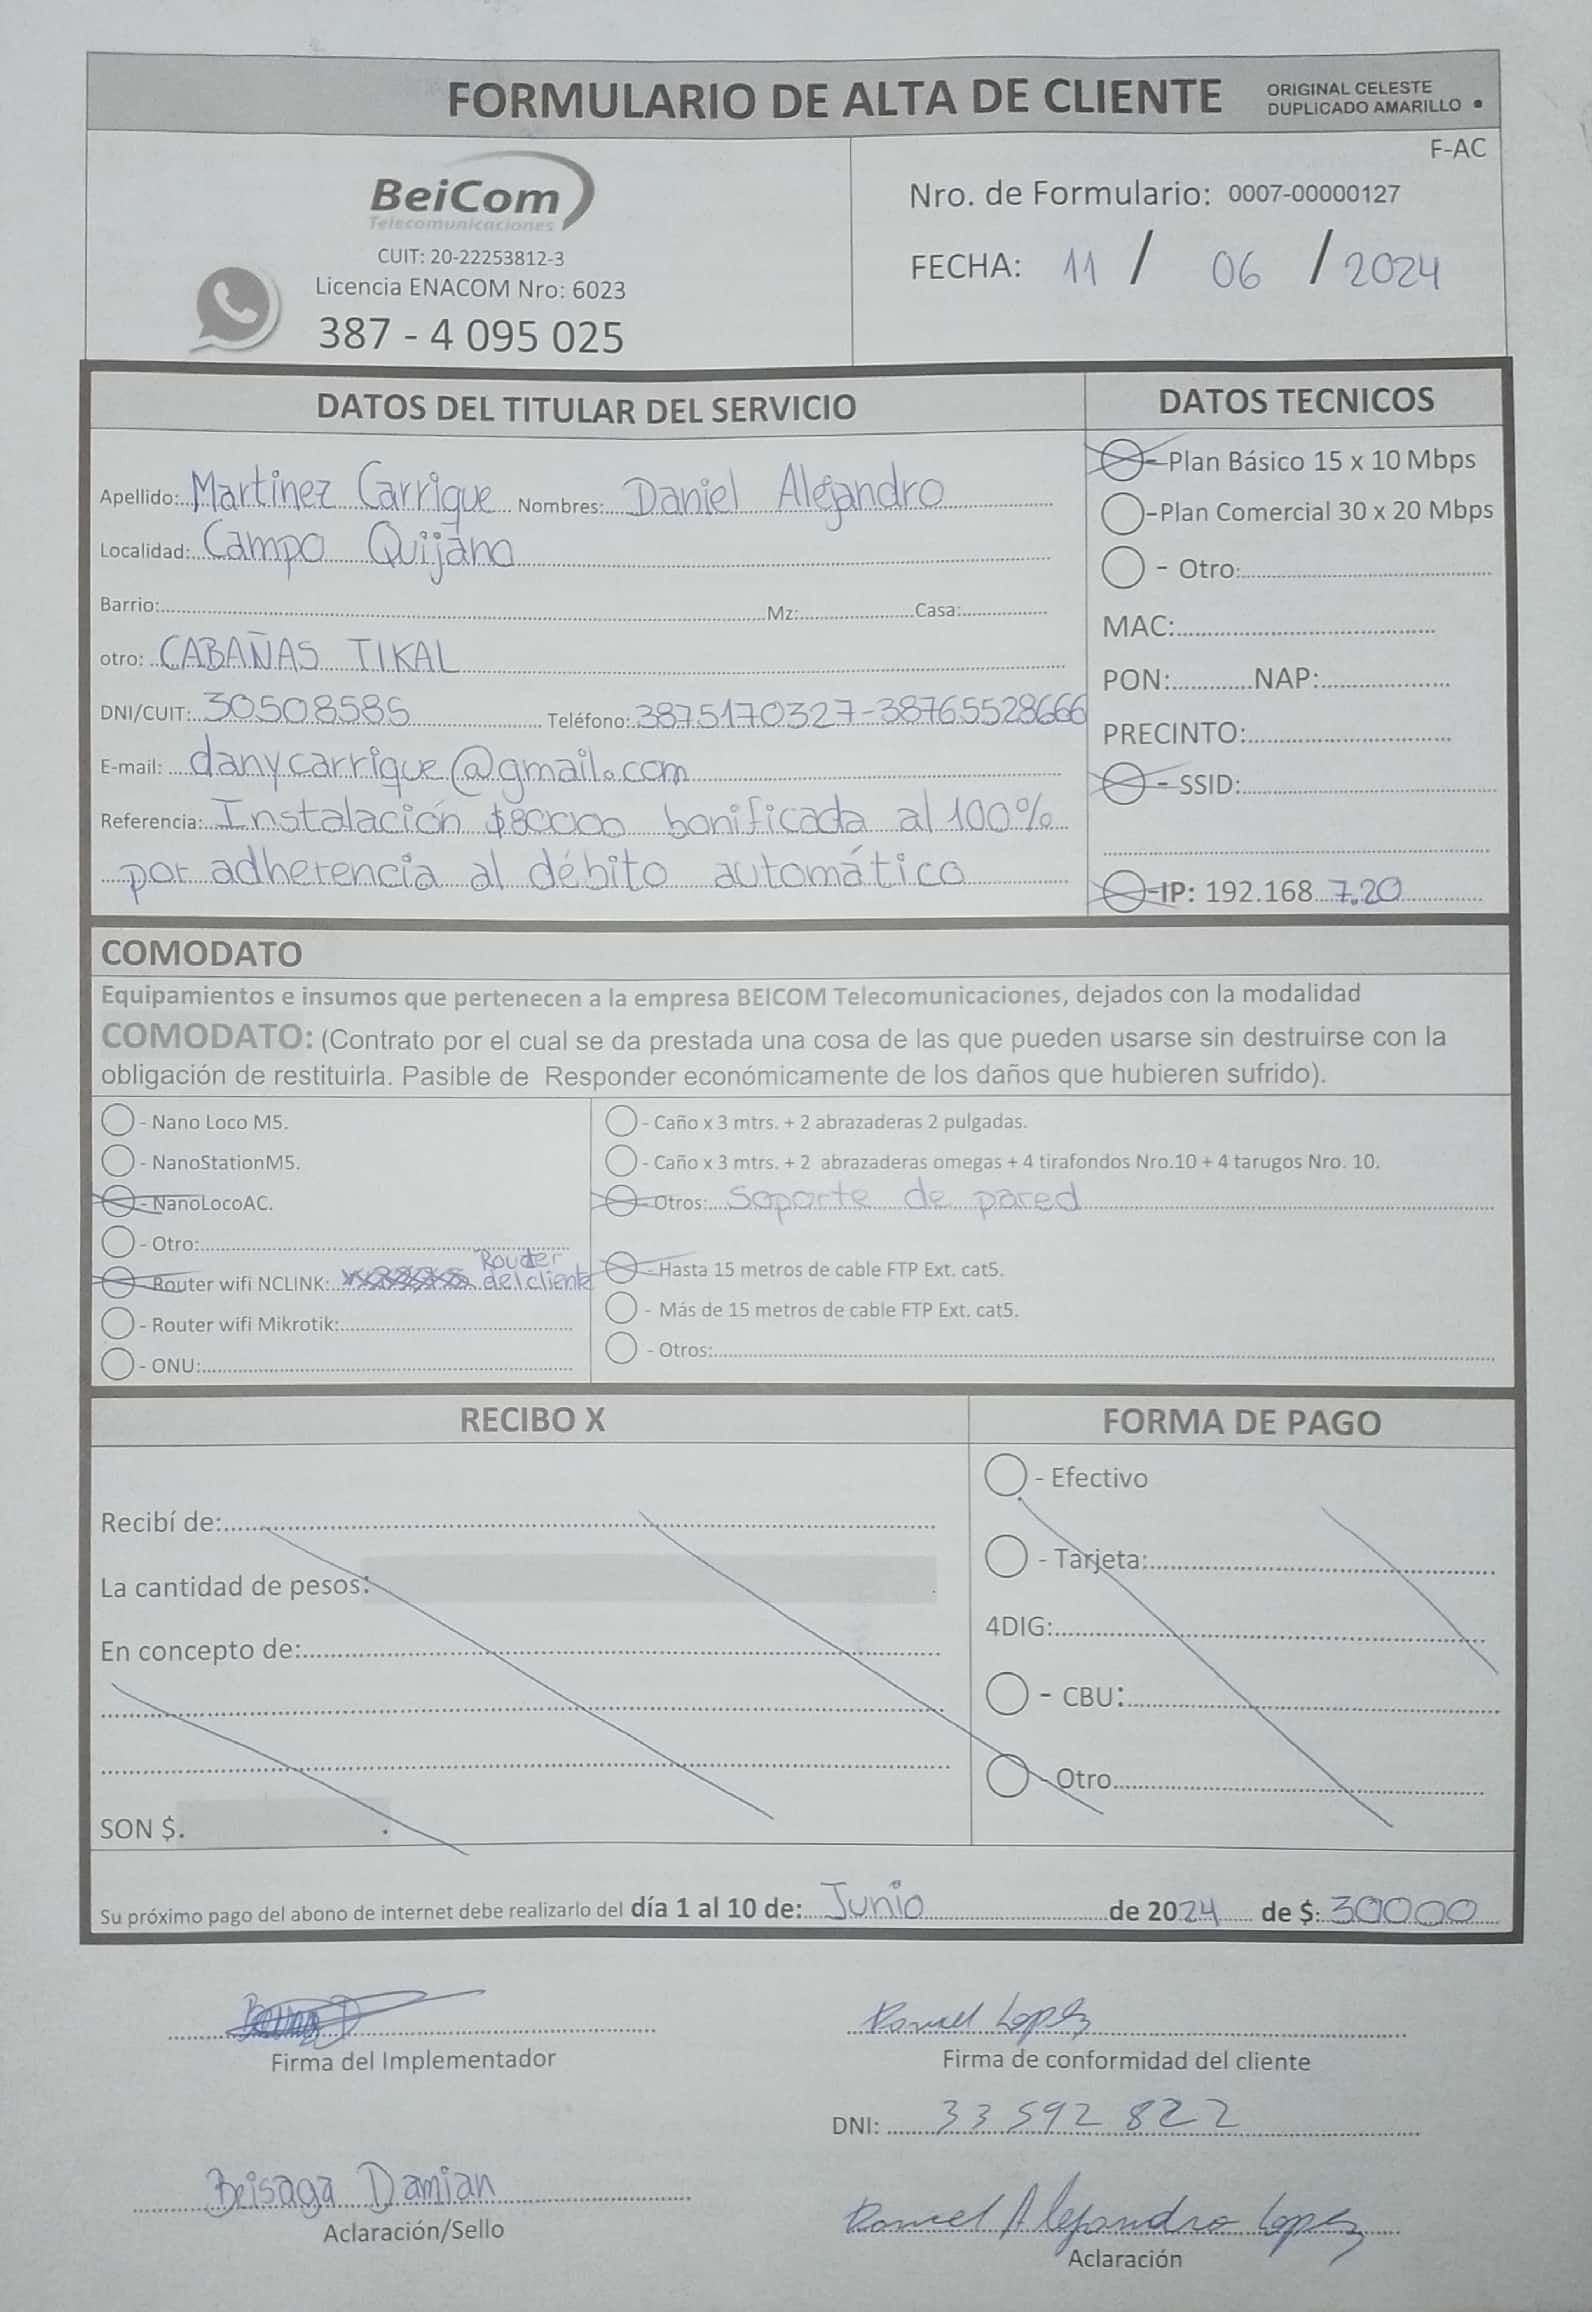 FORMULARIO DE ALTA DE CLIENTE
ORIGINAL CELESTE
DUPLICADO AMARILLO
F-AC
BeiCom
Telecomunicaciones
CUIT: 20-22253812-3
Licencia ENACOM Nro: 6023
387 - 4 095 025
Nro. de Formulario: 0007-00000127
FECHA: 11 / 06 / 2024
DATOS DEL TITULAR DEL SERVICIO
Apellido: Martinez Carrique Nombres: Daniel Alejandro
Localidad: Campo Quijano
Barrio: Mz: Casa:
otro: CABAÑAS TIKAL
DNI/CUIT: 30508585 Teléfono: 3875170327-38765528666
E-mail: danycarrique@gmail.com
Referencia: Instalación $80000 bonificada al 100%
por adherencia al débito automático
DATOS TECNICOS
- Plan Básico 15 x 10 Mbps
- Plan Comercial 30 x 20 Mbps
- Otro:
MAC:
PON: NAP:
PRECINTO:
- SSID:
-IP: 192.168 7.20
COMODATO
Equipamientos e insumos que pertenecen a la empresa BEICOM Telecomunicaciones, dejados con la modalidad
COMODATO: (Contrato por el cual se da prestada una cosa de las que pueden usarse sin destruirse con la
obligación de restituirla. Pasible de Responder económicamente de los daños que hubieren sufrido).
- Nano Loco M5.
- NanoStationM5.
- NanoLocoAC.
- Otro:
- Router wifi NCLINK: Router
del cliente
- Router wifi Mikrotik:
- ONU:
- Caño x 3 mtrs. + 2 abrazaderas 2 pulgadas.
- Caño x 3 mtrs. + 2 abrazaderas omegas + 4 tirafondos Nro.10 + 4 tarugos Nro. 10.
- Otros: Soporte de pared
- Hasta 15 metros de cable FTP Ext. cat5.
- Más de 15 metros de cable FTP Ext. cat5.
- Otros:
RECIBO X
Recibí de:
La cantidad de pesos:
En concepto de:
SON $.
FORMA DE PAGO
- Efectivo
- Tarjeta:
4DIG:
- CBU:
- Otro
Su próximo pago del abono de internet debe realizarlo del día 1 al 10 de: Junio de 2024 de $: 30000
Firma del Implementador
Daniel Lopez
Firma de conformidad del cliente
DNI: 33 592 822
Beisaga Damian
Aclaración/Sello
Daniel Alejandro Lopez
Aclaración